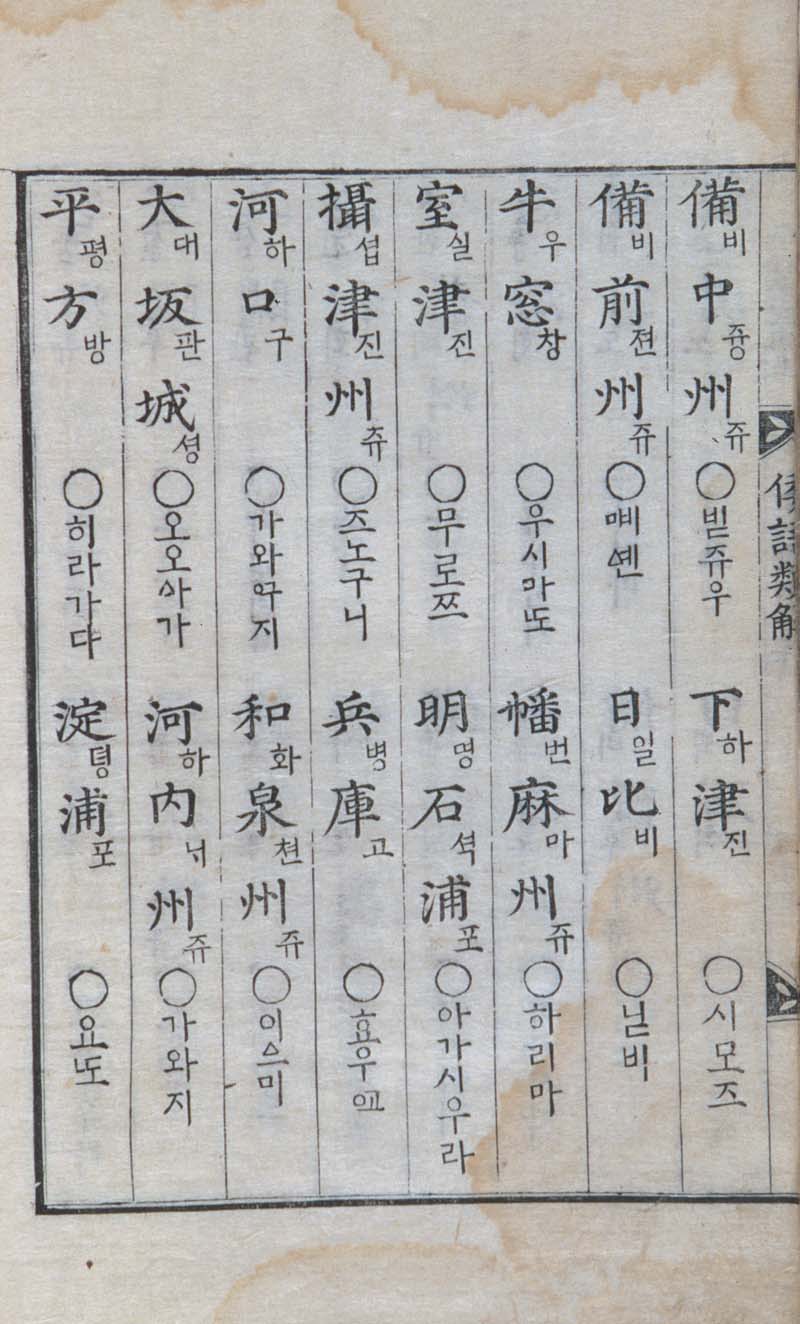 倭語類解
備비中즁州쥬○빋쥬우 下하津진○시모즈
備비前젼州쥬○ᄤᅵ󠀠옌 日일比비○닏비
牛우窓창○우시마도 幡번麻마州쥬○하리마
室실津진○무로쯔 明명石셕浦포○아가시우라
攝셥津진州쥬○즈노구니 兵병庫고○효우ᅋᅩ
河하口구○가와ᅌᅮ지 和화泉쳔州쥬○이으미
大대坂판城셩○오오사가 河하內ᄂᆡ州쥬○가와지
平평方방○히라가다 淀뎡浦포○요도